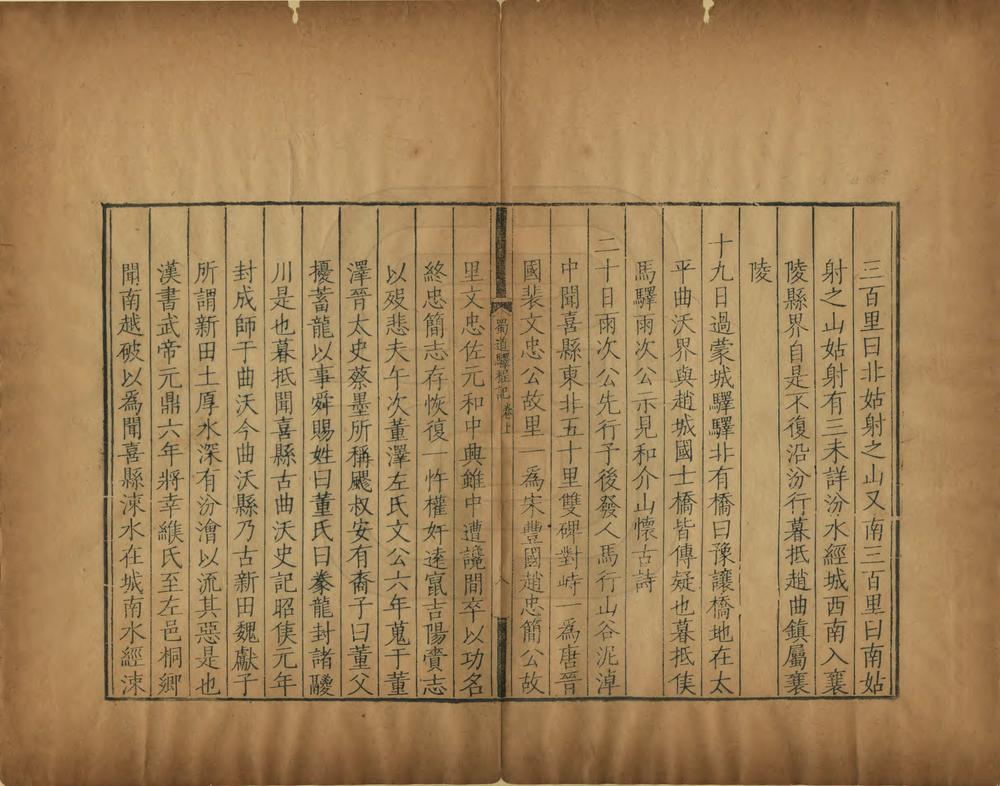 三百里曰北姑射之山又南三百里曰南姑
射之山姑射有三未詳汾水經城西南入襄
陵縣界自是不復沿汾行暮抵趙曲鎮屬襄
陵
十九日過蒙城驛驛北有橋曰豫讓橋地在太
平曲沃界與趙城國士橋皆傳疑也暮抵侯
馬驛雨次公示見和介山懷古詩
二十日雨次公先行予後發人馬行山谷泥淖
中聞喜縣東北五十里雙碑對峙一爲唐晉
國裴文忠公故里一爲宋豐國趙忠簡公故
蜀道驛程記 卷上
八
里文忠佐元和中興雖中遭讒間卒以功名
終忠簡志存恢復一忤權奸遠竄吉陽賫志
以歿悲夫午次董澤左氏文公六年蒐于董
澤晉太史蔡墨所稱飂叔安有裔子曰董父
擾蓄龍以事舜賜姓曰董氏曰豢龍封諸鬷
川是也暮抵聞喜縣古曲沃史記昭侯元年
封成師于曲沃今曲沃縣乃古新田魏獻子
所謂新田土厚水深有汾澮以流其惡是也
漢書武帝元鼎六年將幸緱氏至左邑桐鄉
聞南越破以爲聞喜縣涑水在城南水經涑